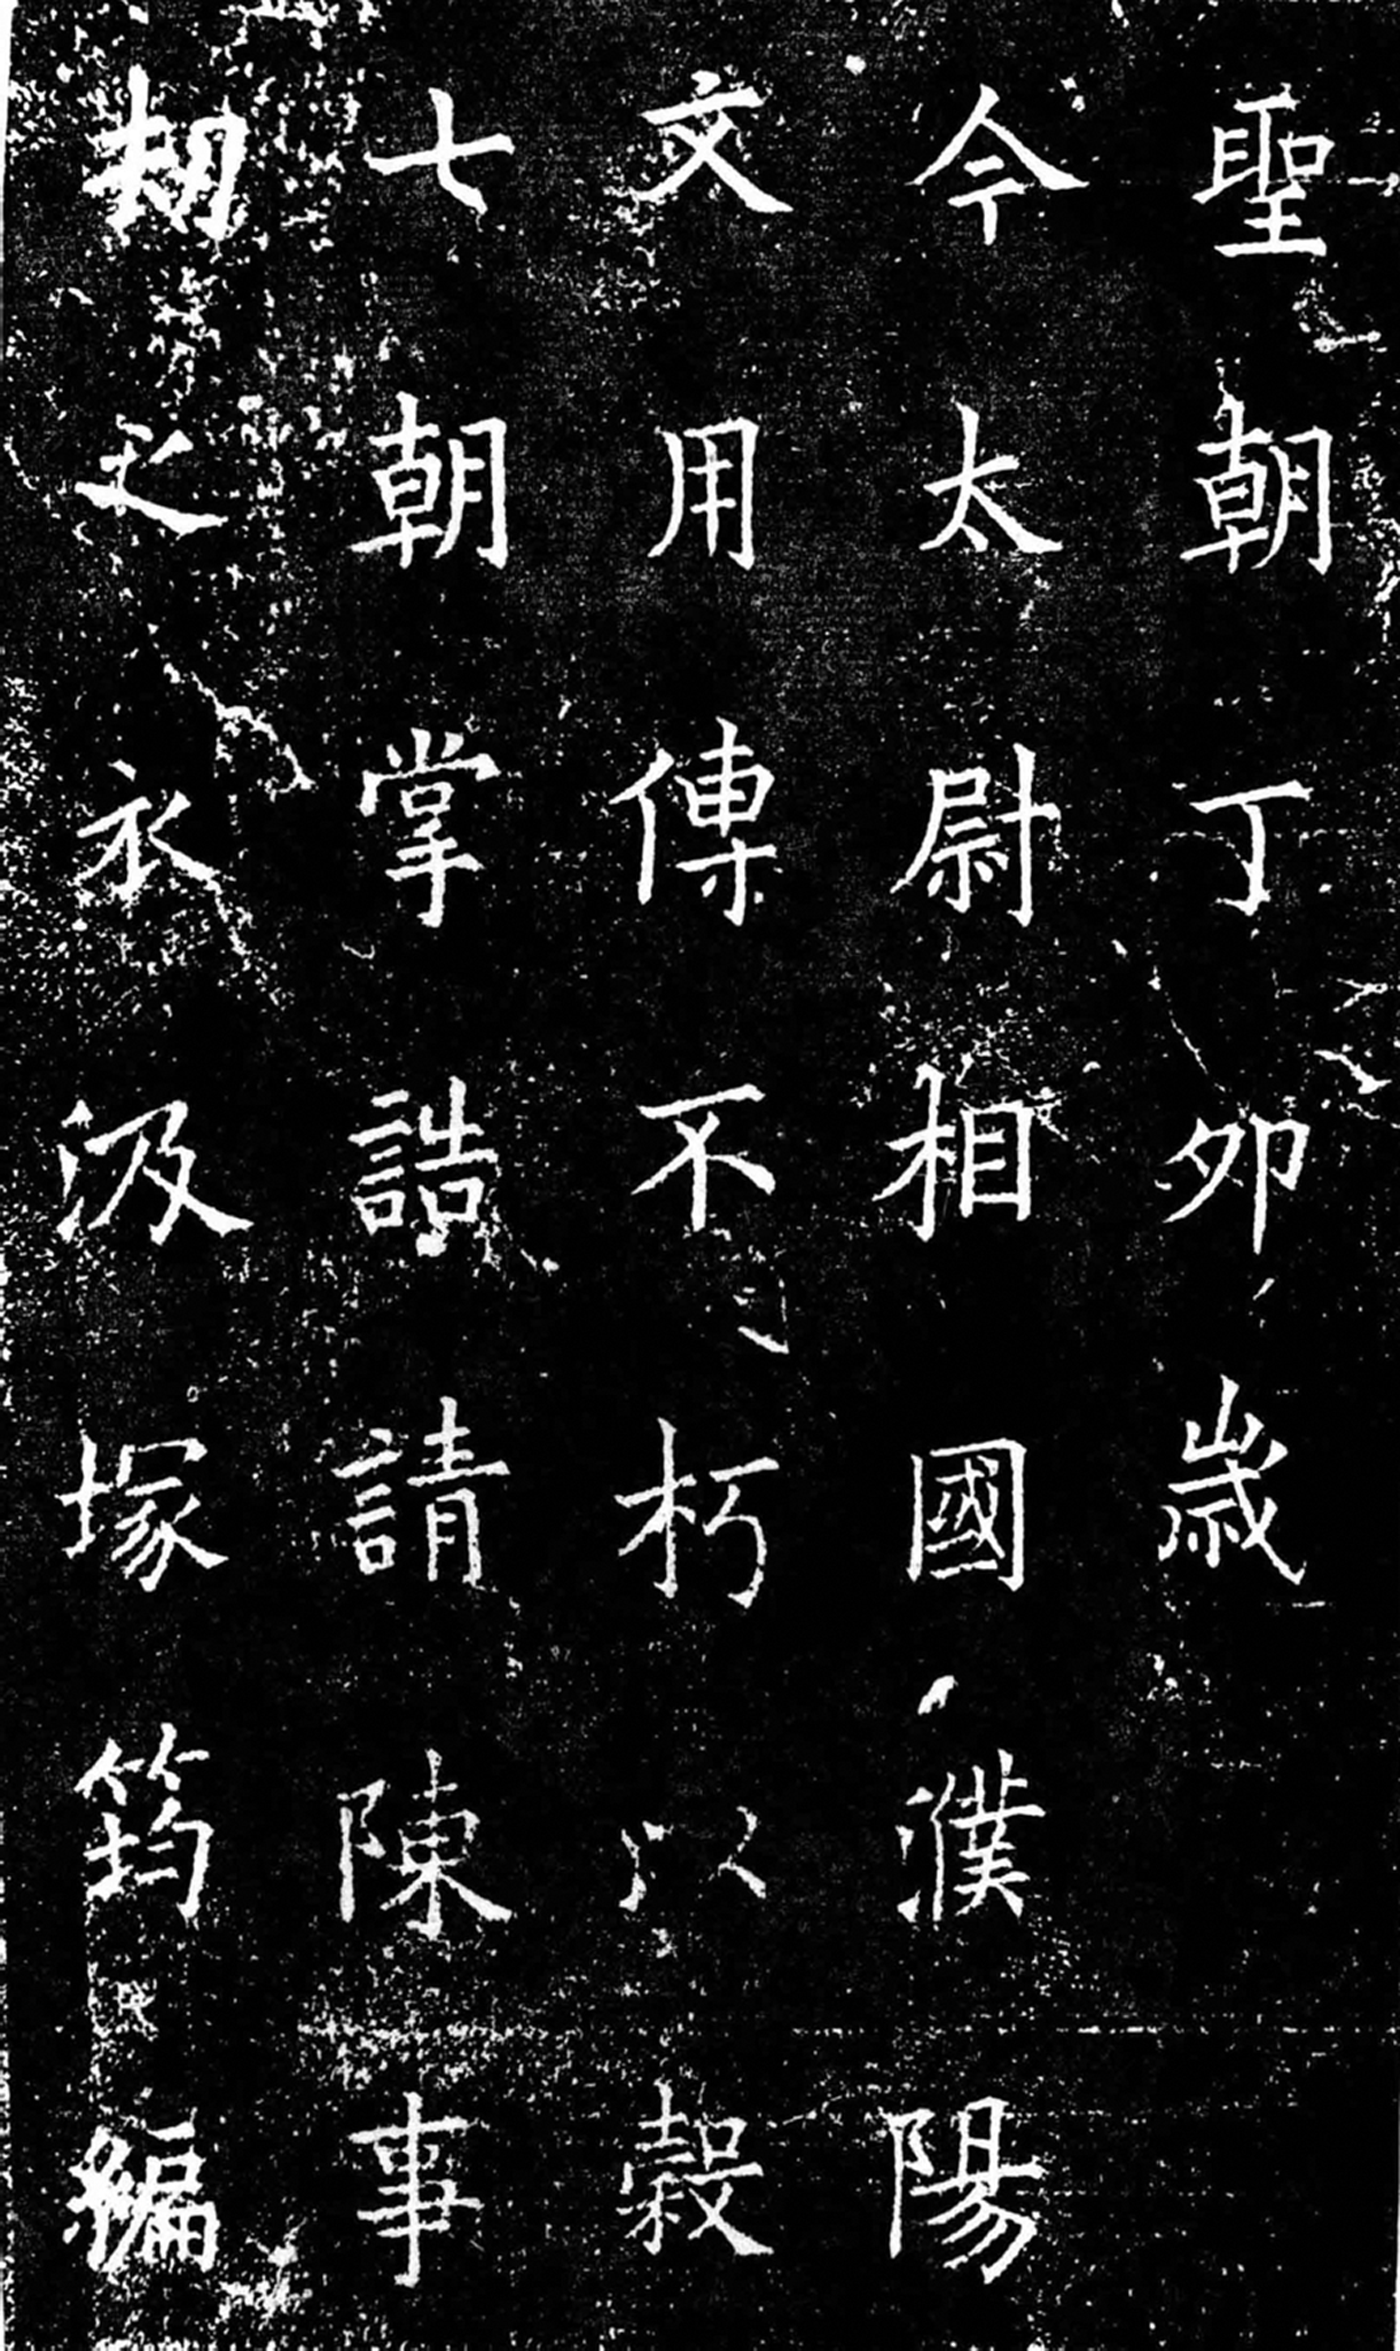 聖朝丁卯歲
今太尉相國濮陽
文用傳不朽以穀
七朝掌誥請陳事
之衣汲塚筠編